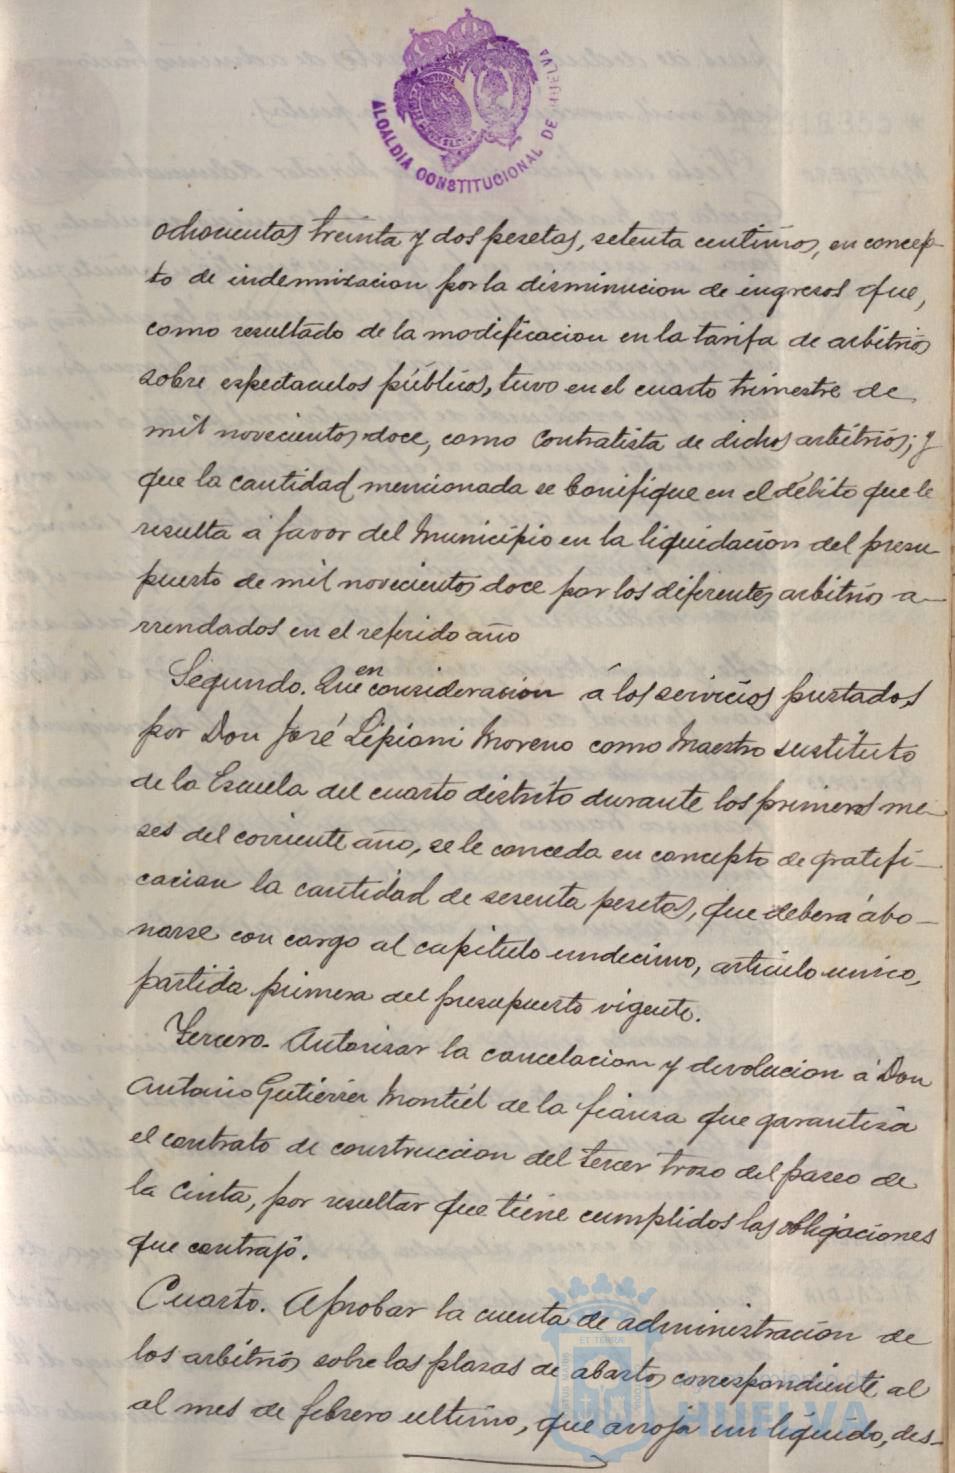 ALCALDIA CONSTITUCIONAL DE HUELVA
ochocientas treinta y dos pesetas, setenta centimos, en concep-
to de indemnizacion por la disminucion de ingresos que,
como resultado de la modificacion en la tarifa de arbitrios
sobre espectaculos públicos, tuvo en el cuarto trimestre de
mil novecientos doce, como Contratista de dichos arbitrios; y
que la cantidad mencionada se bonifique en el débito que le
resulta á favor del Municipio en la liquidacion del presu-
puesto de mil novecientos doce por los diferentes arbitrios a-
rrendados en el referido año
Segundo. Que en consideracion á los servicios prestados
por Don José Lipiani Moreno como Maestro sustituto
de la Escuela del cuarto distrito durante los primeros me-
ses del corriente año, se le conceda en concepto de gratifi-
cacion la cantidad de sesenta pesetas, que deberá abo-
narse con cargo al capitulo undecimo, articulo unico,
partida primera del presupuesto vigente.
Tercero. Autorizar la cancelacion y devolucion á Don
Antonio Gutiérrez Montiel de la fianza que garantiza
el contrato de construccion del tercer trozo del paseo de
la Cinta, por resultar que tiene cumplidos las obligaciones
que contrajo.
Cuarto. Aprobar la cuenta de administracion de
los arbitrios sobre las plazas de abastos correspondiente al
al mes de febrero ultimo, que arroja un líquido, des-
HUELVA